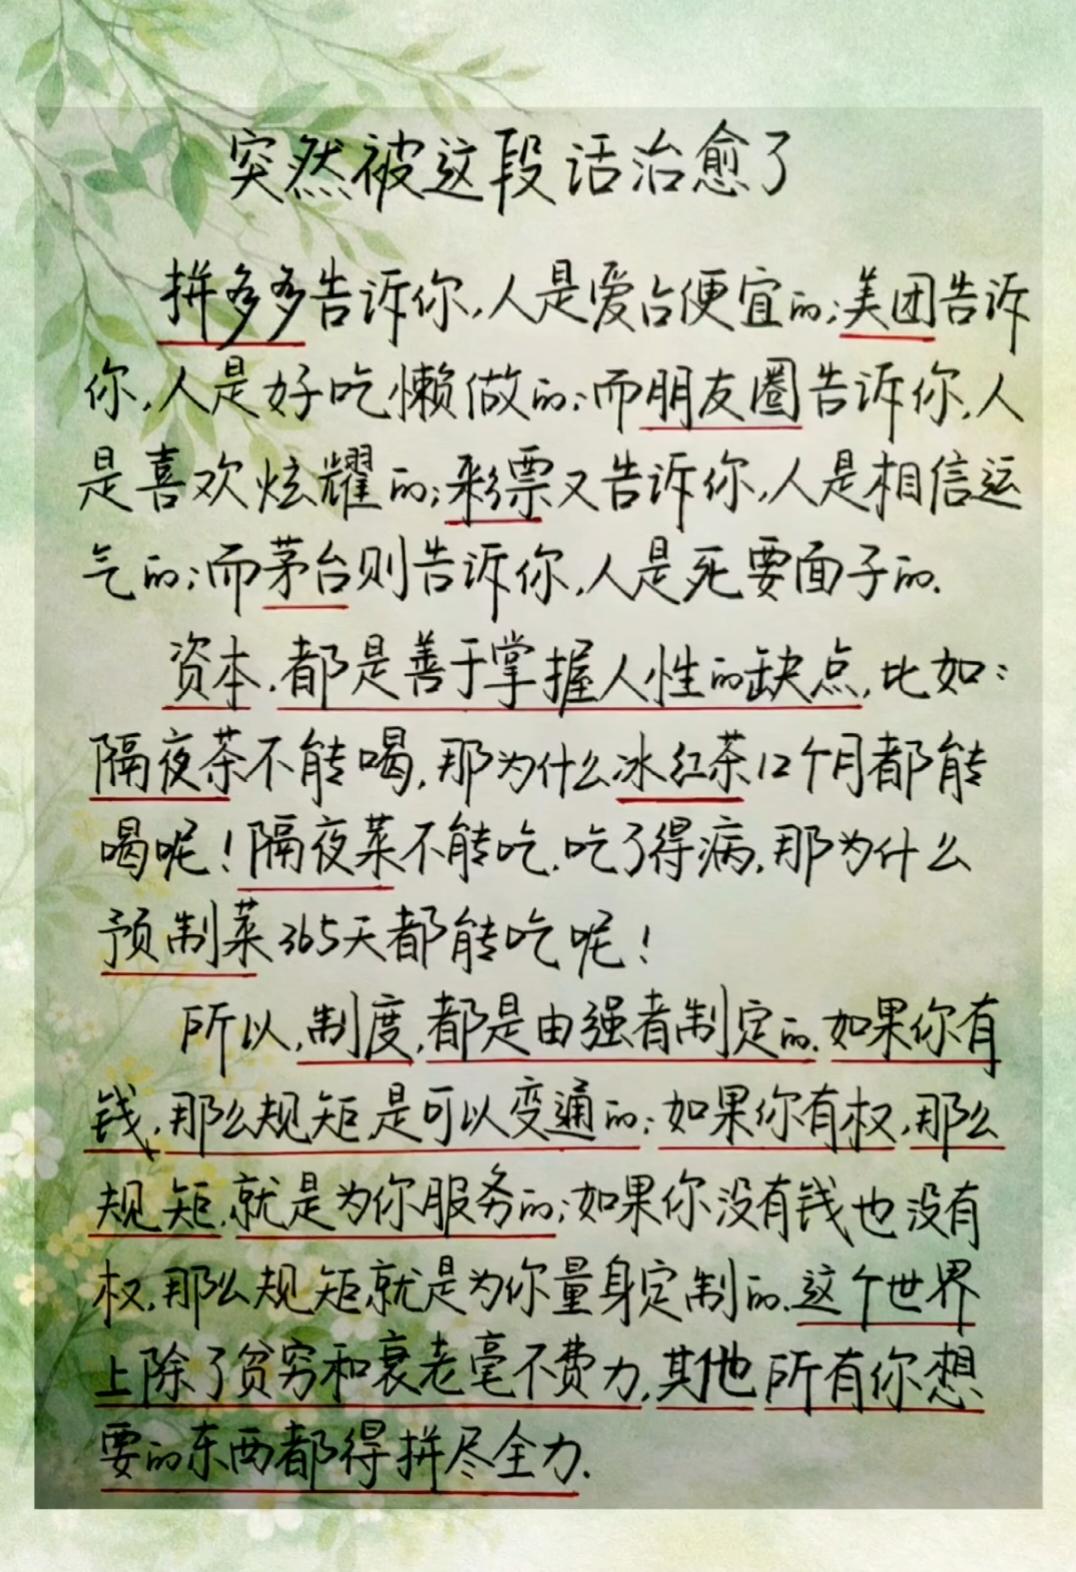 突然被这段话治愈了
拼多多告诉你,人是爱占便宜的;美团告诉
你,人是好吃懒做的;而朋友圈告诉你,人
是喜欢炫耀的;彩票又告诉你,人是相信运
气的;而茅台则告诉你,人是死要面子的.
资本,都是善于掌握人性的缺点,比如:
隔夜茶不能喝,那为什么冰红茶12个月都能
喝呢!隔夜菜不能吃.吃了得病,那为什么
预制菜365天都能吃呢!
所以,制度,都是由强者制定的.如果你有
钱,那么规矩,是可以变通的;如果你有权,那么
规矩,就是为你服务的;如果你没有钱也没有
权,那么规矩,就是为你量身定制的.这个世界
上除了贫穷和衰老毫不费力,其他所有你想
要的东西都得拼尽全力.